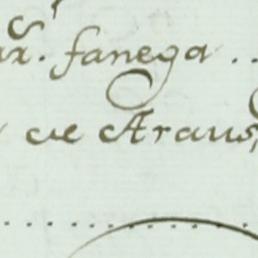 fanega ..
de Araus,